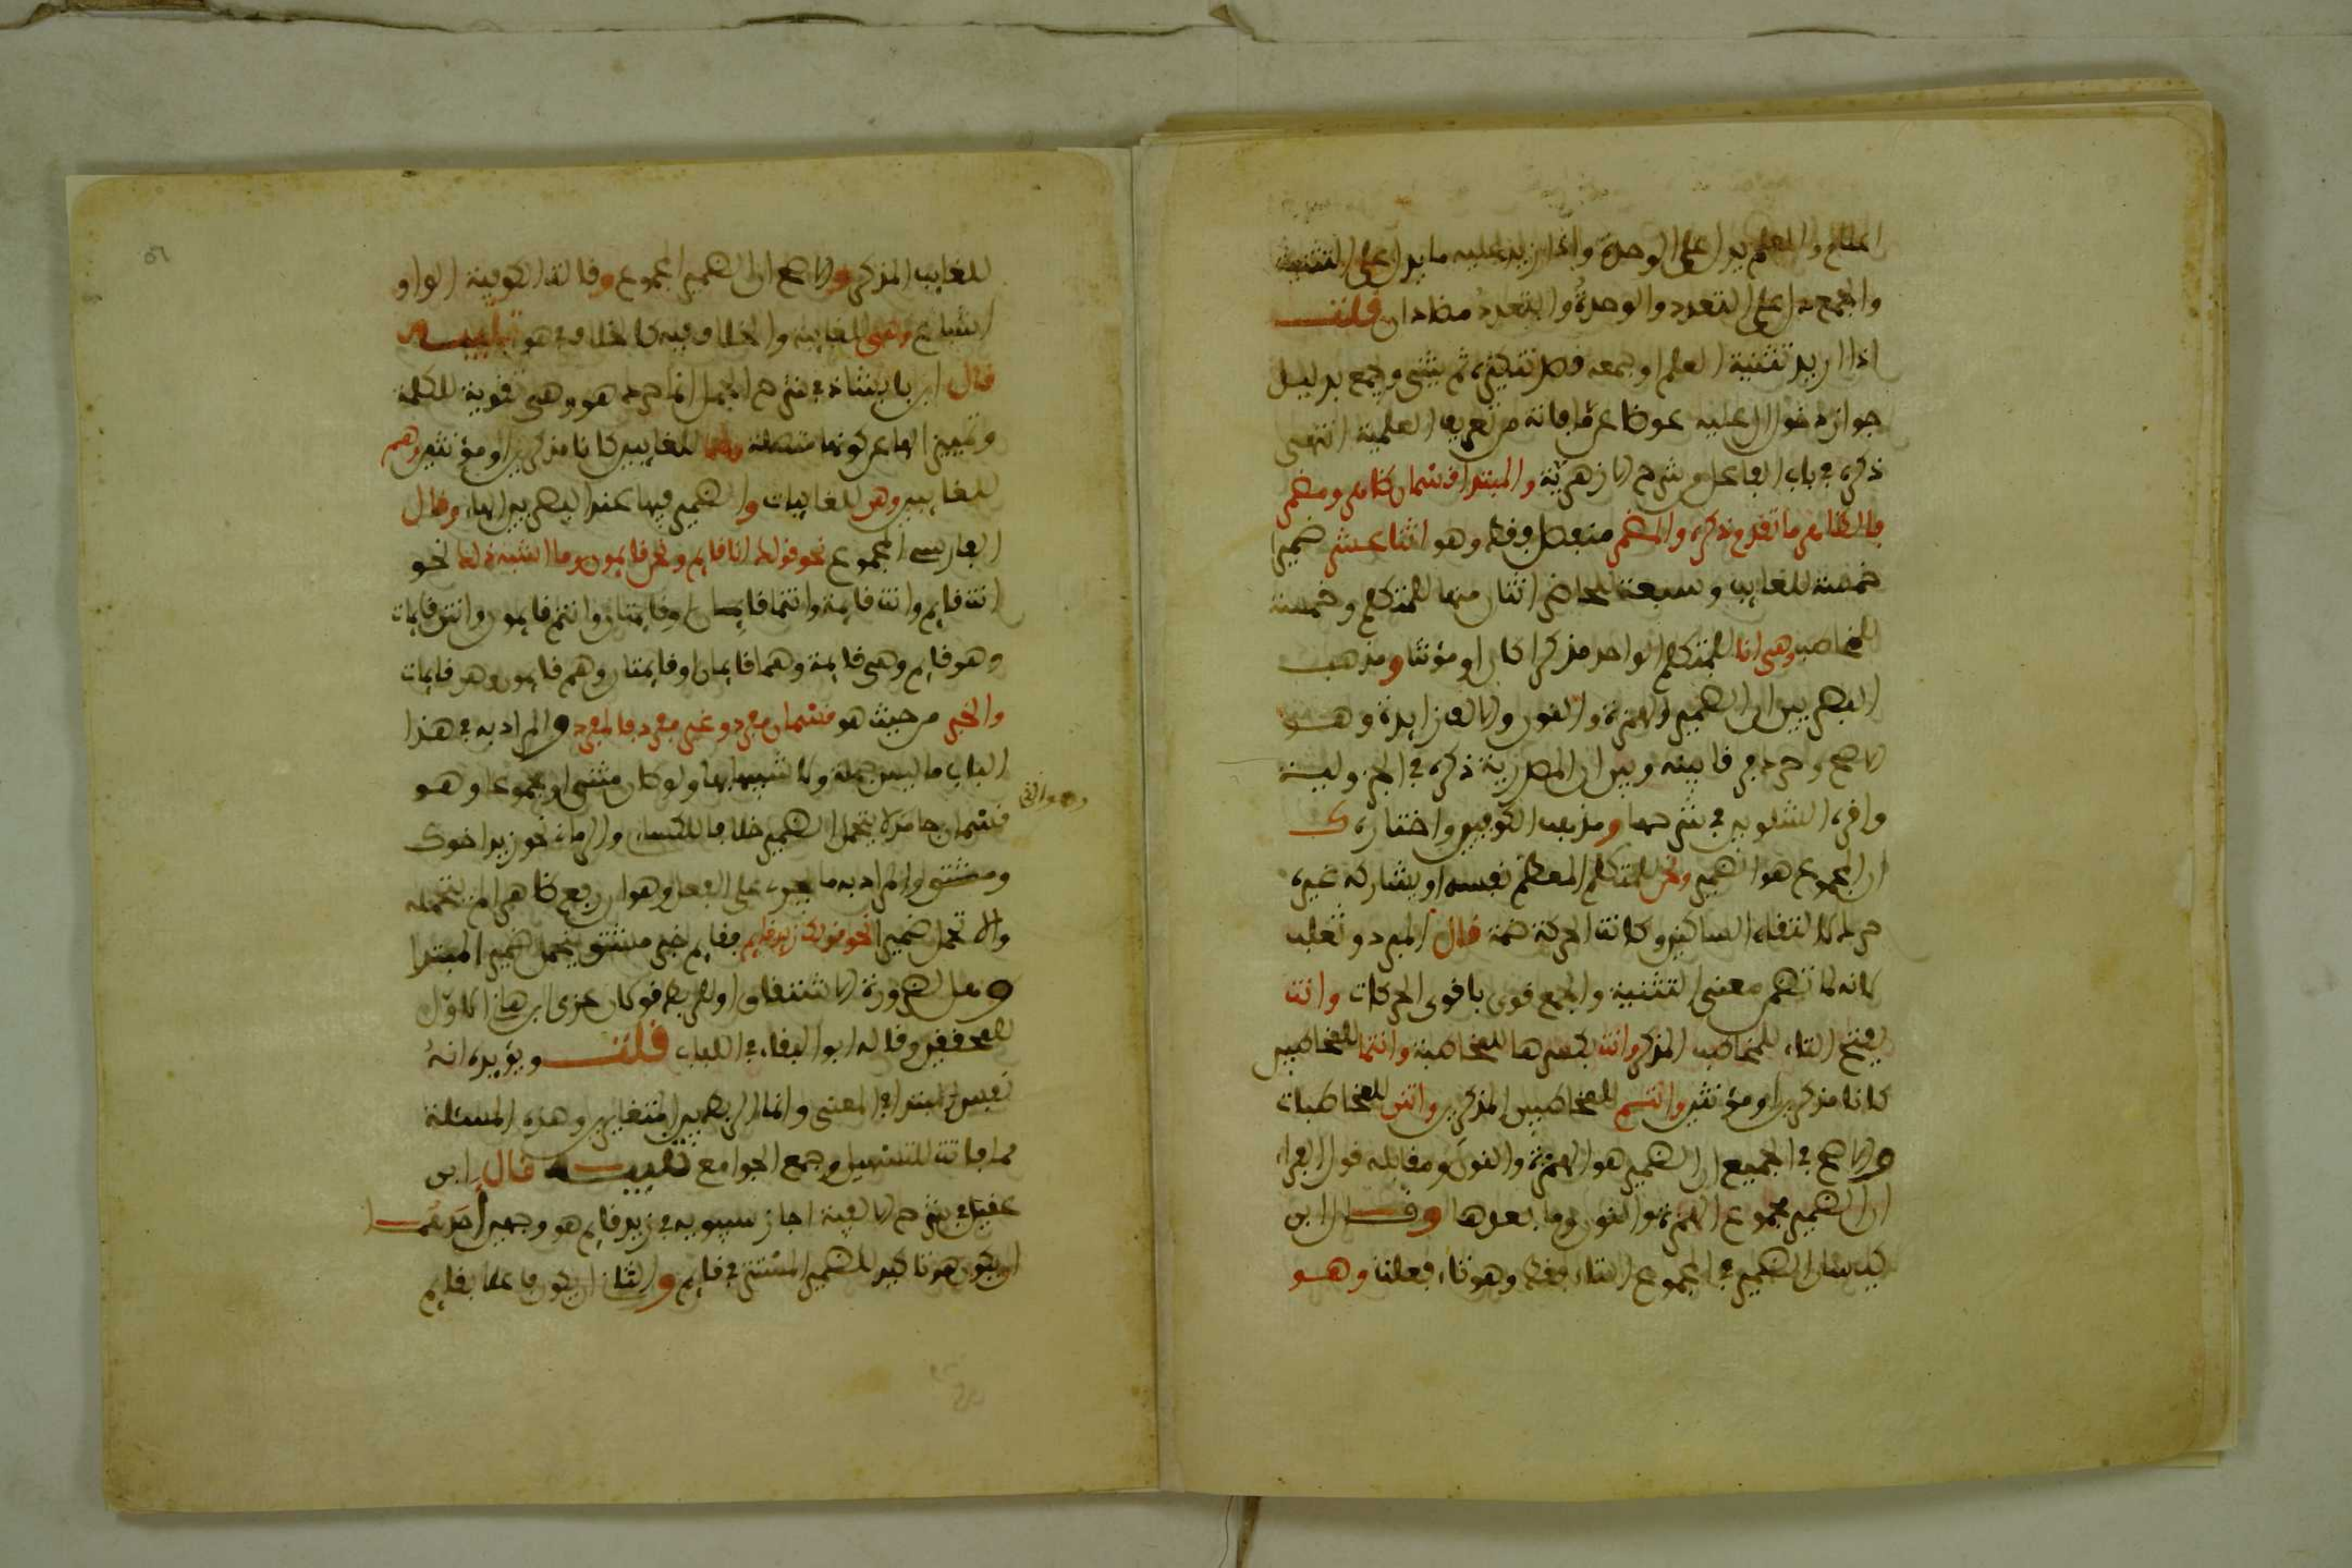 اعلام والعلم يدل على الوحدة واذا زيد عليه ما يدل على التثنية
والجمع دل على التعدد والوحدة والتعدد متضادان قلت
اذا اريد تثنية العلم او جمعه قصد تنكيره ثم يثنى ويجمع بدليل
جواز دخول ال عليه عوضا عما فاته من تعريف العلمية انتهى
ذكره في باب الفاعل وشرح الازهرية والمبتدا قسمان ظاهر ومضمر
فالظاهر ما تقدم ذكره والمضمر منفصل فقط وهو اثنا عشر ضميرا
خمسة للغايب وسبعة للحاضر اثنان منها للمتكلم وخمسة
للمخاطب وهي انا للمتكلم الواحد مذكرا كان او مؤنثا ومذهب
البصريين ان الضمير الهمزة والنون والالف زايدة وهو
الاصح وحرد فرقا بينه وبين ان المصدرية ذكره في الجزولية
واقره الشلوبين في شرحها ومذهب الكوفيين واختاره ك
ان المجموع هو الضمير ونحن للمتكلم المعظم نفسه او يشاركه غيره
حرك لالتقاء الساكنين وكانت الحركة ضمة قال المبرد وثعلب
لانه لما تضمن معنى التثنية والجمع قوى باقوى الحركات وانت
بفتح التاء للمخاطب المذكر وانت بكسرها للمخاطبة وانتما للمخاطبين
كانا مذكرين او مؤنثين وانتم للمخاطبين المذكرين وانتن للمخاطبات
والاصح في الجميع ان الضمير هو الهمزة والنون ومقابله قول الفراء
ان الضمير مجموع الهمزة والنون وما بعدها وقال ابن
كيسان الضمير في المجموع التاء فقط وهو تاء فعلت وهو
للغايب المذكر والاصح ان الضمير المجموع وقالت الكوفية الواو
اشباع وهي للغايبة والخلاف فيه كالخلاف في هو تنبيه
قال ابن بابشاذ في شرح الجمل انما حرد هو وهي تقوية للكلمة
وتمييز الها عن كونها متصلة وهما للغايبين كانا مذكرين او مؤنثين وهم
للغايبين وهن للغايبات والضمير فيها عند البصريين الهاء وقال
الفارسي المجموع نحو قولك انا قايم ونحن قايمون وما اشبه ذلك نحو
انت قايم وانت قايمة وانتما قايمان وقايمتان وانتم قايمون وانتن قايمات
وهو قايم وهي قايمة وهما قايمان او قايمتان وهم قايمون وهن قايمات
والخبر من حيث هو قسمان مفرد وغير مفرد فالمفرد والمراد به في هذا
الباب ما ليس جملة ولا شبيها بها ولو كان مثنى او مجموعا وهو
قسمان جامد لا يتحمل الضمير خلافا للكساء والرماني نحو زيد اخوك
ومشتق والمراد به ما يجرى على الفعل وهو ان رفع ظاهرا لم يتحمله
والا تحمل ضميرا نحو قولك زيد قايم فقايم خبر مشتق يتحمل ضمير المبتدا
للمحققين وقاله ابو البقاء في اللباب قلت ويؤيده انه
نفس المبتدا في المعنى وانما الربط بين المتغايرين وهذه المسئلة
مما فاتت للتسهيل وجمع الجوامع تنبيه قال ابن
عقيل في شرح الالفية اجاز سيبويه في زيد قايم هو وجهين احدهما
ان يكون هو تاكيد للضمير المستتر في قايم والثاني ان يكون فاعلا بقايم